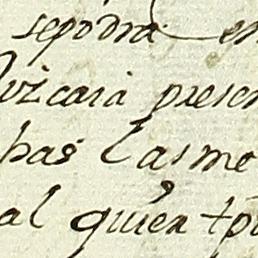 sepodra en
Vizcaia presen
has Lasme
al quien tpo